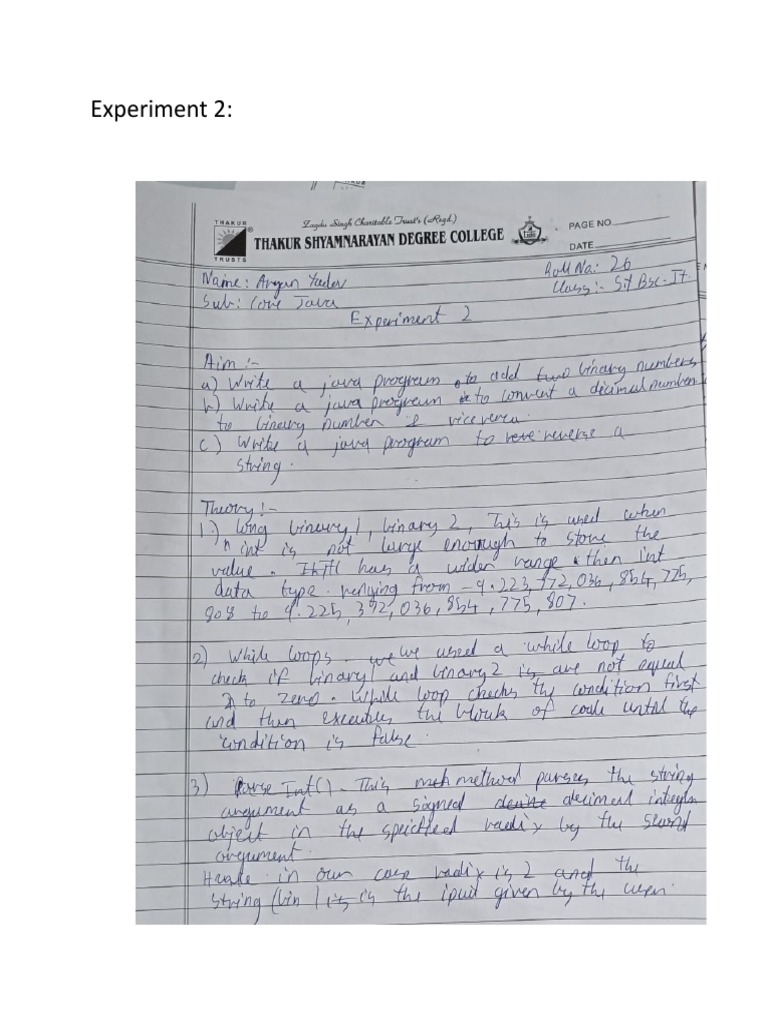 Experiment 2:
THAKUR
TRUSTS
Zagdu Singh Charitable Trust's (Regd.)
THAKUR SHYAMNARAYAN DEGREE COLLEGE
PAGE NO.
DATE
Name: Aryan Yadav
Roll No: 26
Sub: Core Java
Class:- SY Bsc-It
Experiment 2
Aim :-
a) Write a java program to add two binary numbers
b) Write a java program to convert a decimal number
to binary number & vicevera.
c) Write a java program to reve reverse a
string.
Theory :-
1.) Long binary1, binary 2, This is used when
int is not large enough to store the
value. It has a wider range then int
data type. renying from -9.223,372,036,854,775,
808 to 9.225,372,036,854,775,807.
2) While loops - we used a while loop to
check if binary1 and binary2 is are not equal
to zero. While loop checks the condition first
and then executes the block of code until the
condition is false.
3) Parse Int() - This meh method parses the string
argument as a signed decimal integer
object in the specified radix by the second
argument.
in our case radix is 2 and the
string (bin) is is the iput given by the user.